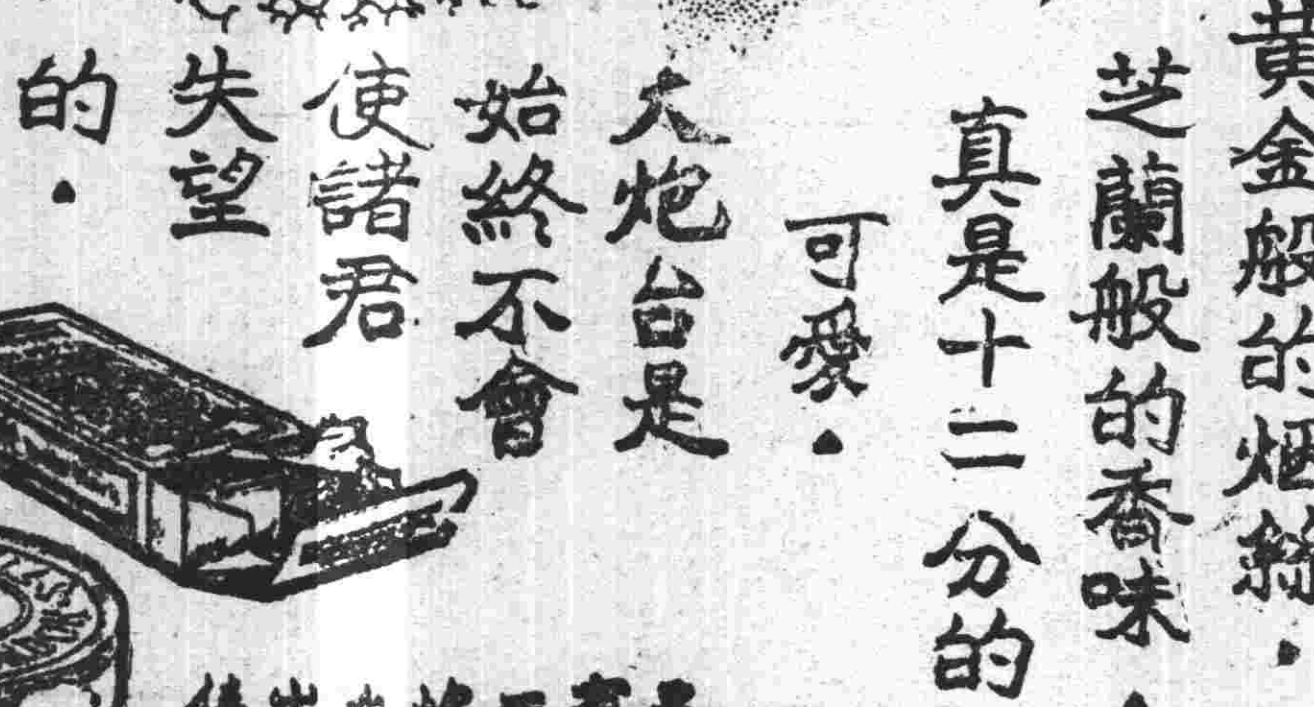 黄金般的烟絲.
芝蘭般的香味.
真是十二分的
可愛.
大炮台是
始終不會
使諸君
失望
的.